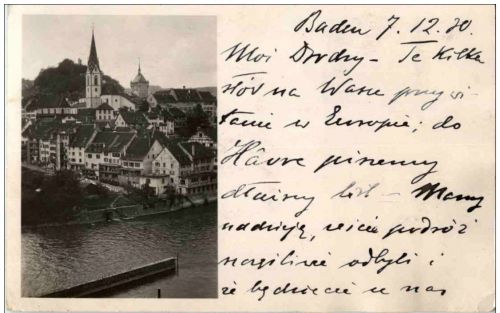 Baden 7.12.30.
Moi Drodzy – Te kilka
słów na Wasze przywi-
tanie w Europie; do
Hâvre piszemy
dłuższy list – Mamy
nadzieję, że podróż
szczęśliwie odbyli i
że będziecie u nas